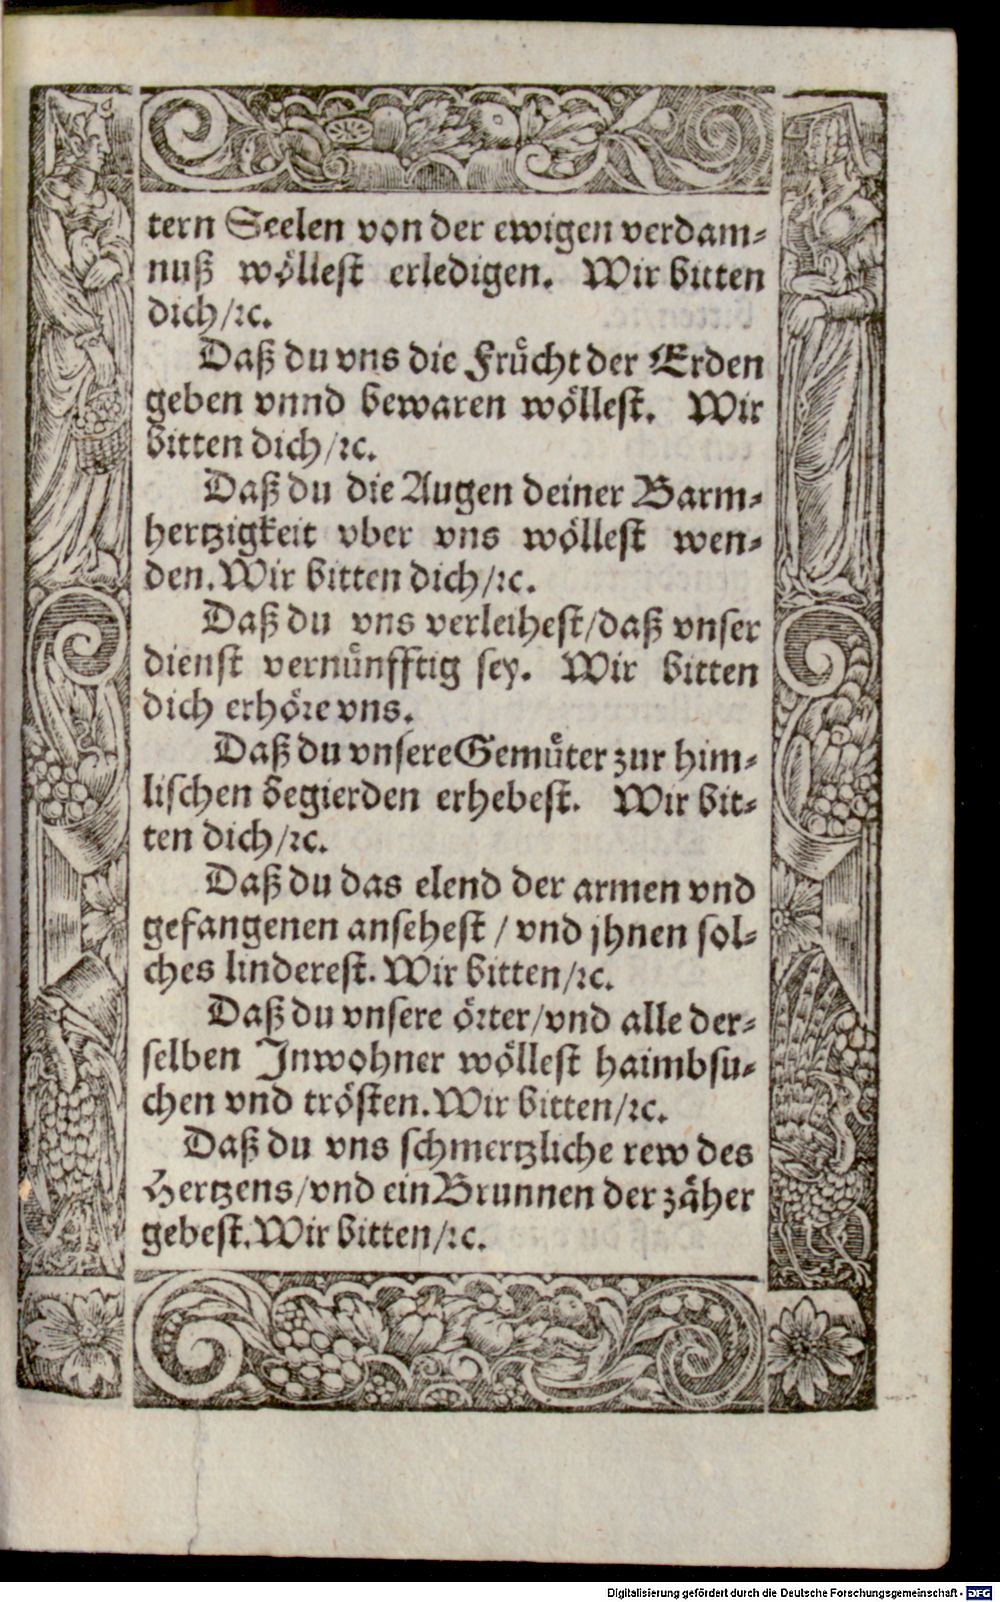 tern Seelen von der ewigen verdam⸗
nuß wöllest erledigen. Wir bitten
dich/ꝛc.
Daß du vns die Frücht der Erden
geben vnnd bewaren wöllest. Wir
bitten dich/ꝛc.
Daß du die Augen deiner Barm⸗
hertzigkeit vber vns wöllest wen⸗
den. Wir bitten dich/ꝛc.
Daß du vns verleihest/daß vnser
dienst vernünfftig sey. Wir bitten
dich erhöre vns.
Daß du vnsere Gemüter zur him⸗
lischen begierden erhebest. Wir bit⸗
ten dich/ꝛc.
Daß du das elend der armen vnd
gefangenen ansehest / vnd jhnen sol⸗
ches linderest. Wir bitten/ꝛc.
Daß du vnsere örter/vnd alle der⸗
selben Inwohner wöllest haimbsu⸗
chen vnd trösten. Wir bitten/ꝛc.
Daß du vns schmertzliche rew des
Hertzens/vnd ein Brunnen der zäher
gebest. Wir bitten/ꝛc.
Digitalisierung gefördert durch die Deutsche Forschungsgemeinschaft - DFG